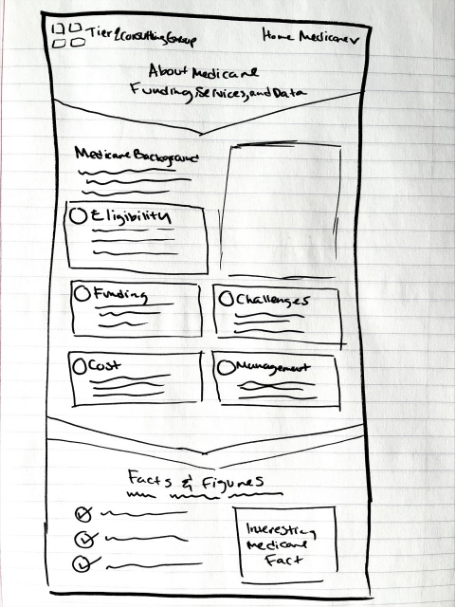 Tier 1 Consulting Group
Home Medicare
About Medicare
Funding, Services, and Data
Medicare Background
Eligibility
Funding
Challenges
Cost
Management
Facts & Figures
Interesting
Medicare
Fact